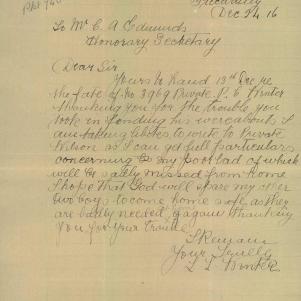 Piccadilly
Dec 24 16
To Mr C A Edmunds
Honorary Secretary
Dear Sir
Yours to hand 13th Dec re
the fate of No 3969 Private P. G
thanking you for the trouble you
took in finding his wereabouts I
am taking libties to write to Private
Wilson as I can get full particulars
concerning my poor lad of which
will be sadly missed from home
I hope that God will spare my other
two boys to come home safe as they
are badly needed, again thanking
you for your trouble
I Remain
Yours Truly